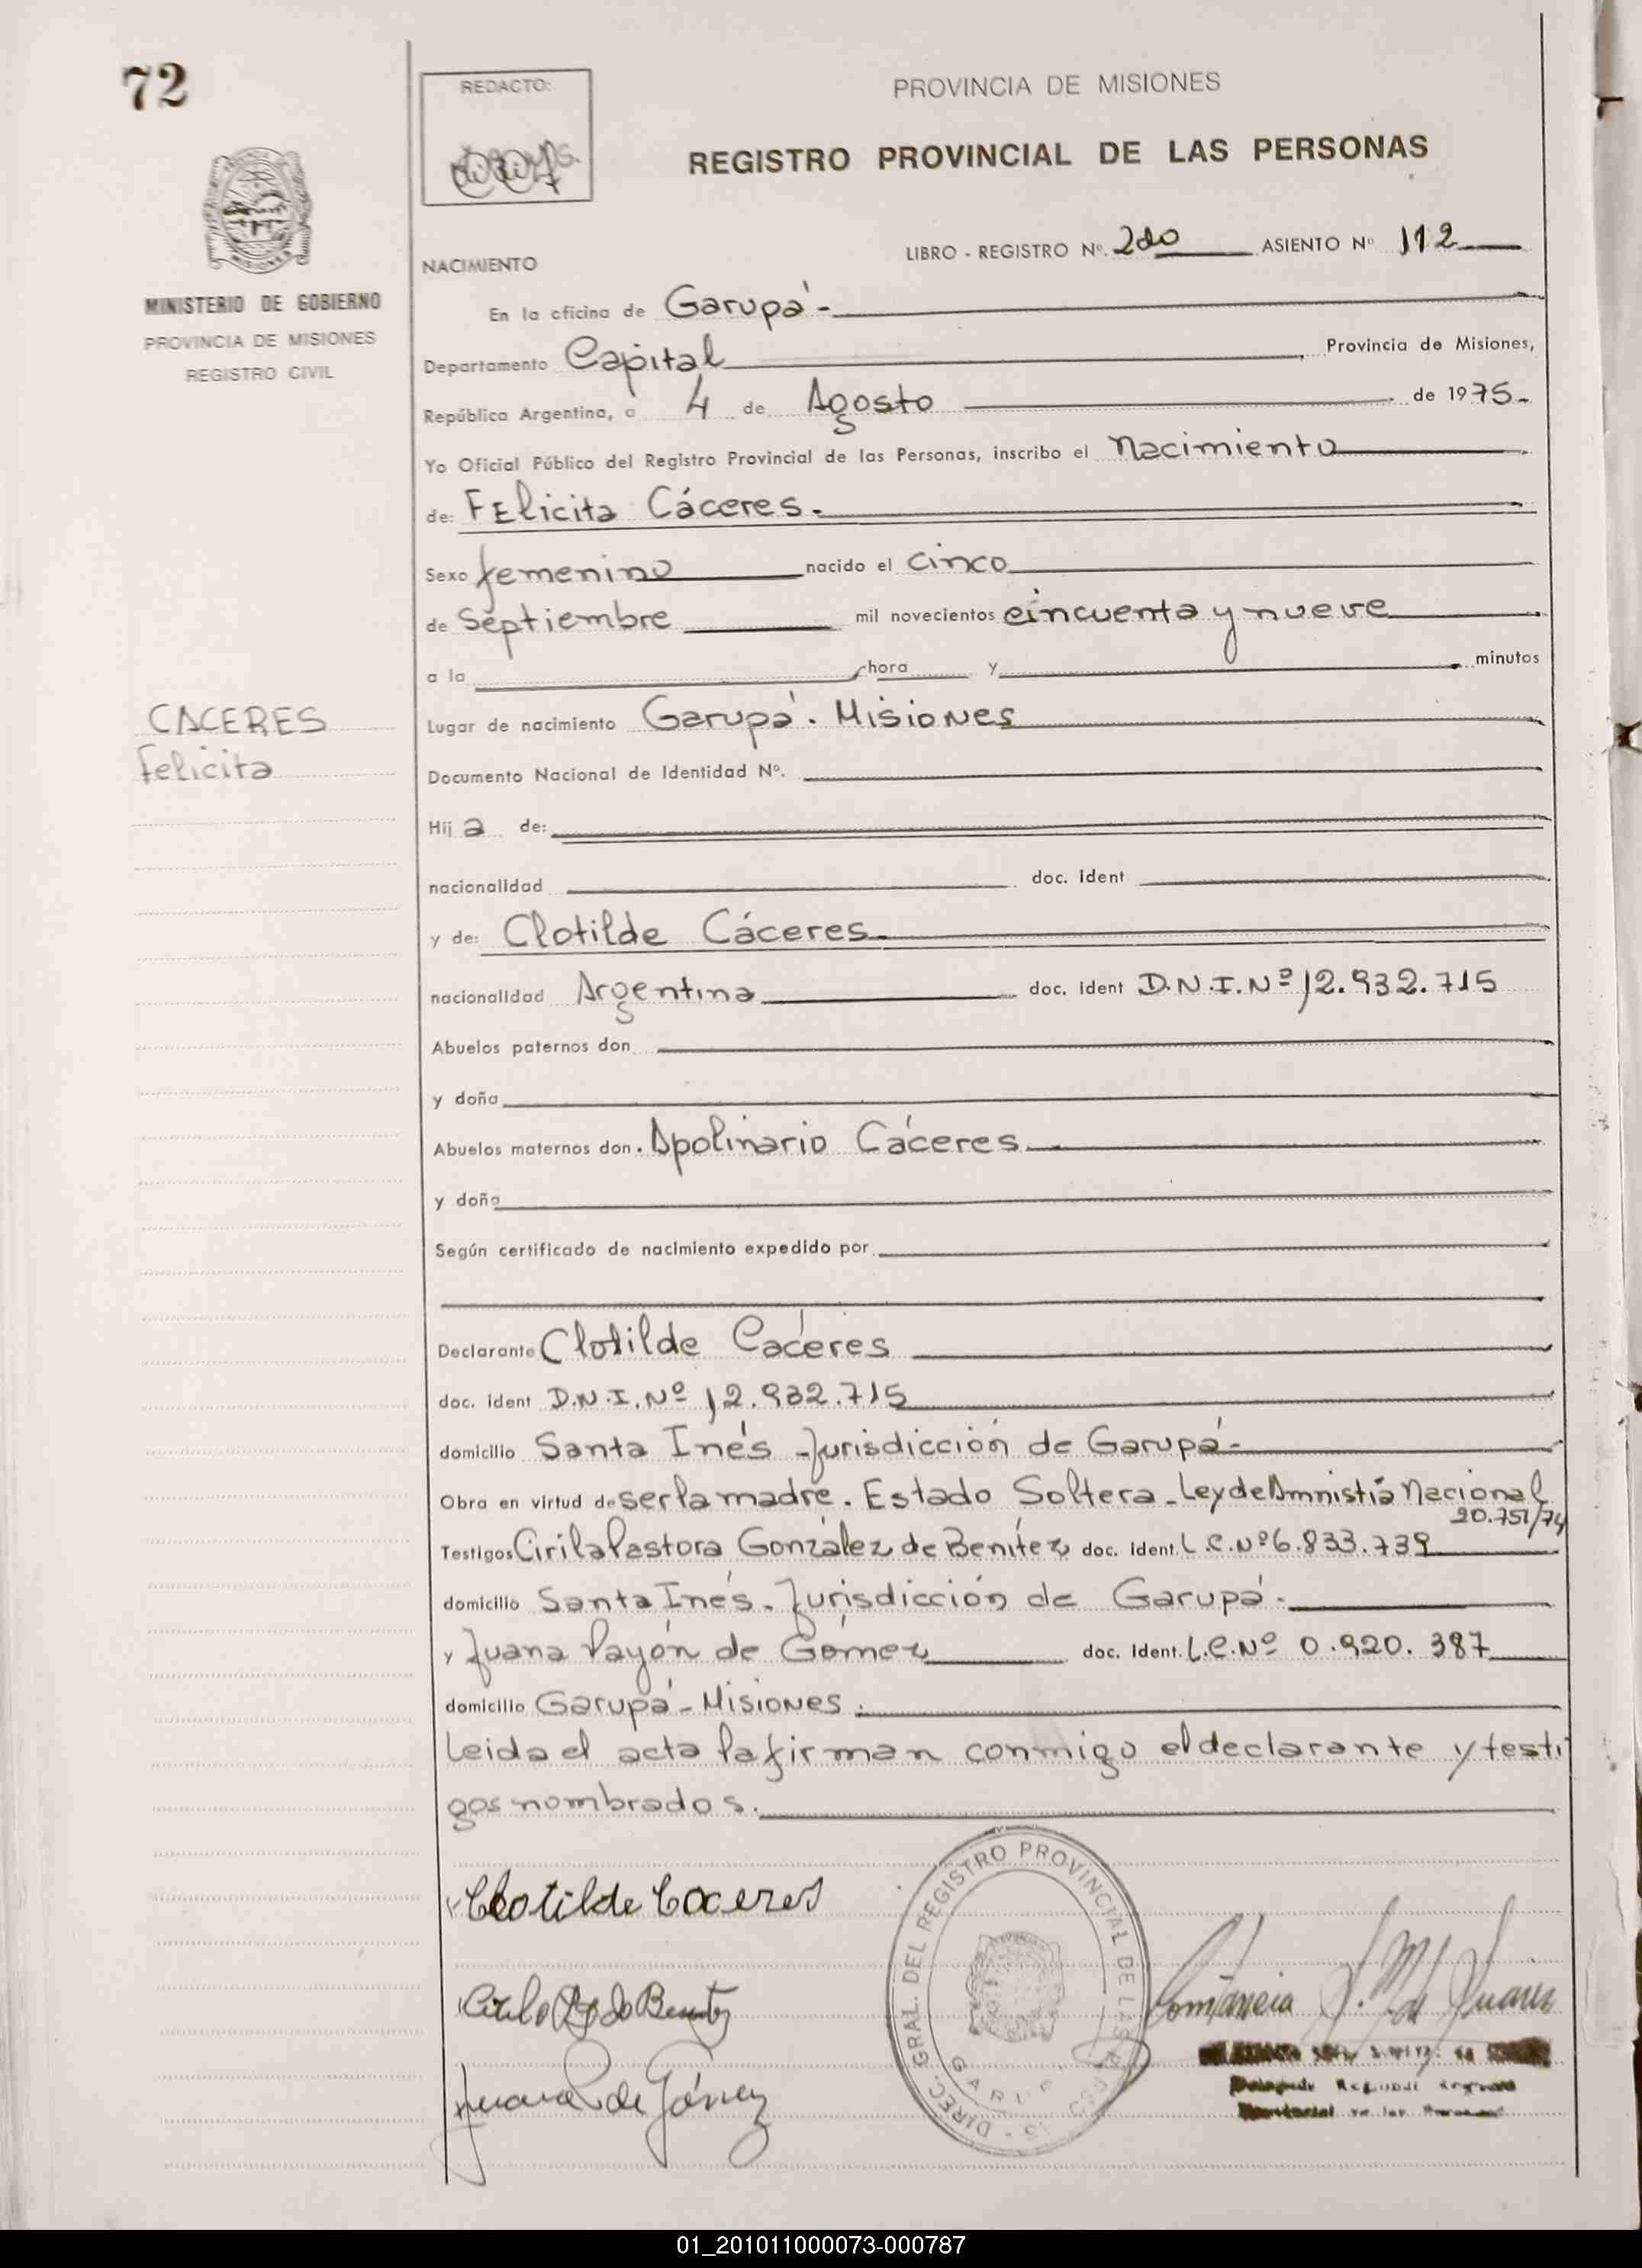 72
REDACTO:
PROVINCIA DE MISIONES
REGISTRO PROVINCIAL DE LAS PERSONAS
LIBRO - REGISTRO Nº. 2do ASIENTO Nº 112
MISIONES
MINISTERIO DE GOBIERNO
PROVINCIA DE MISIONES
REGISTRO CIVIL
NACIMIENTO
En la oficina de Garupá -
Departamento Capital Provincia de Misiones,
República Argentina, a 4 de Agosto de 1975.
Yo Oficial Público del Registro Provincial de las Personas, inscribo el Nacimiento
de: FElicita Cáceres.
Sexo femenino nacido el cinco
de Septiembre mil novecientos cincuenta y nueve
a la hora y minutos
CACERES
Felicita
Lugar de nacimiento Garupá. Misiones
Documento Nacional de Identidad Nº.
Hij a de:
nacionalidad doc. ident
y de: Clotilde Cáceres.
nacionalidad Argentina doc. ident D.N.I. Nº 12.932.715
Abuelos paternos don
y doña
Abuelos maternos don. Apolinario Cáceres
y doña
Según certificado de nacimiento expedido por
Declarante Clotilde Cáceres
doc. ident D.N.I. Nº 12.932.715
domicilio Santa Inés - Jurisdicción de Garupá -
Obra en virtud de ser la madre. Estado Soltera - Ley de Amnistía Nacional
20.751/74
Testigos Cirila Pastora González de Benítez doc. ident. L.C. Nº 6.833.739
domicilio Santa Inés. Jurisdicción de Garupá.
y Juana Payón de Gómez doc. ident. L.C. Nº 0.920.387
domicilio Garupá - Misiones.
Leida el acta la firman conmigo el declarante y testi
gos nombrados.
Clotilde Caceres
DIREC. GRAL. DEL REGISTRO PROVINCIAL DE LAS
Juana P. de Gómez
01_201011000073-000787